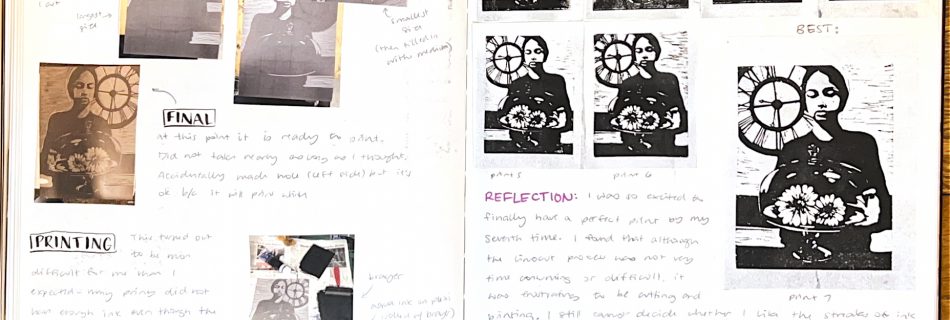 I cut
largest
size
smallest
size
(then filled in
with medium)
FINAL
At this point it is ready to print.
Did not take nearly as long as I thought.
Accidentally made hole (left side) but it's
ok b/c it will print with
PRINTING
This turned out
to be more
difficult for me than I
expected - my prints did not
have enough ink even though the
brayer
BEST:
print 5
print 6
print 7
REFLECTION: I was so excited to
finally have a perfect print by my
seventh time. I found that although
the linocut process was not very
time consuming or difficult, it
was frustrating to be cutting and
printing. I still cannot decide whether I like the streaks of ink